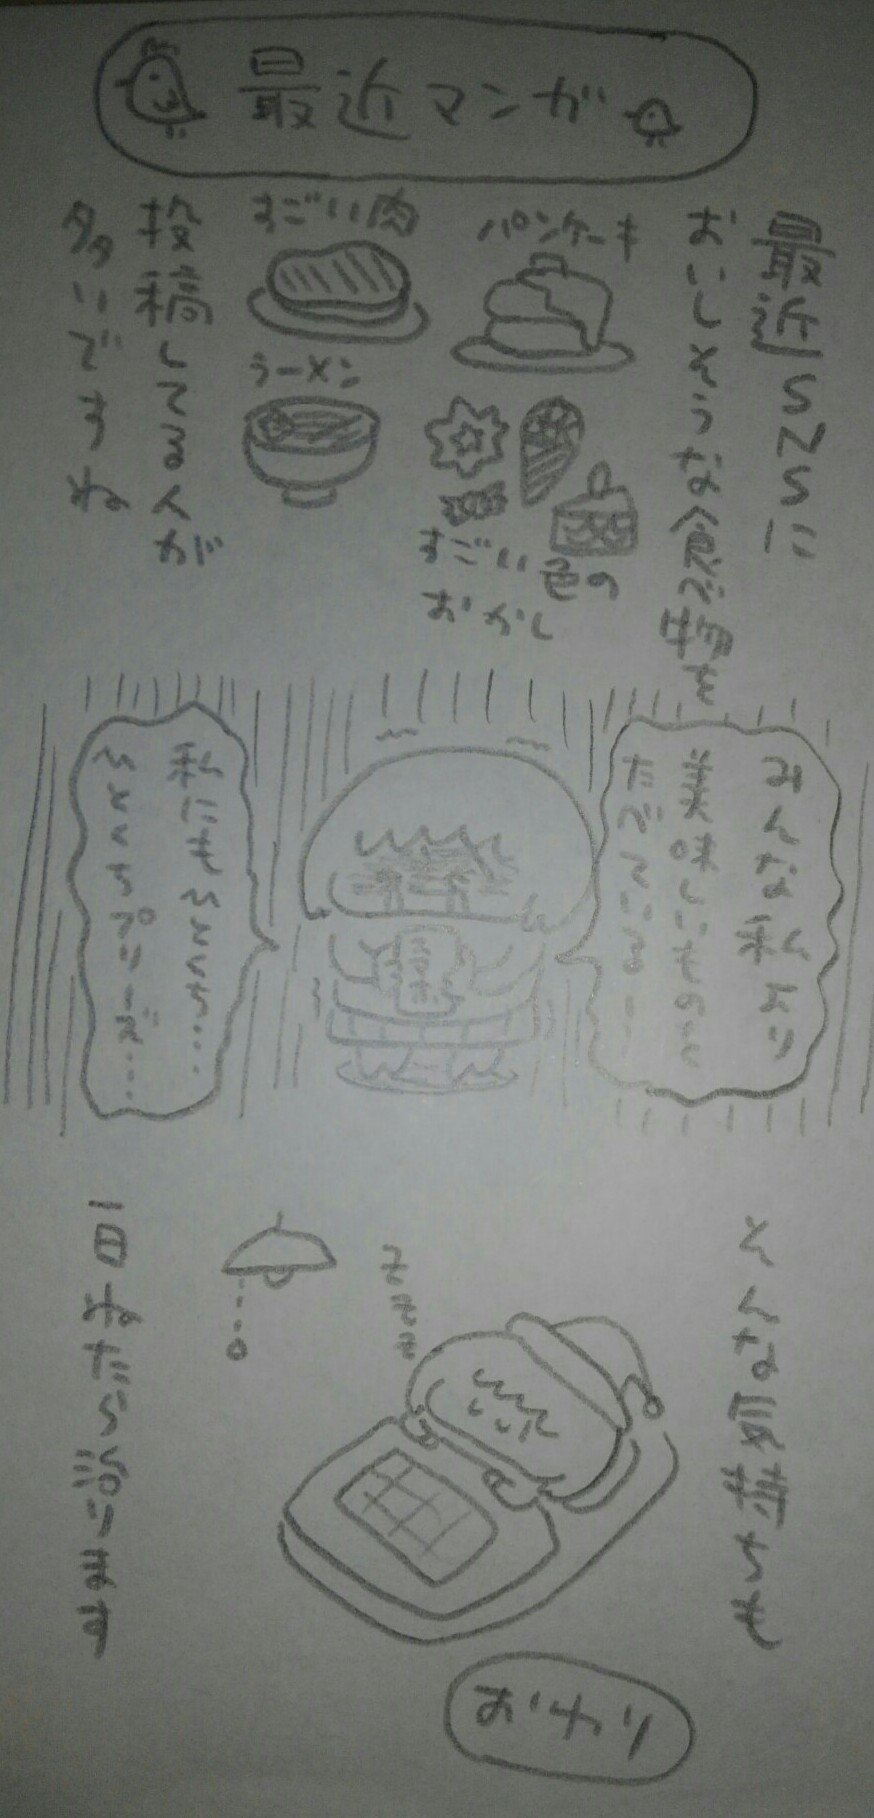 最近マンガ
最近SNSに
おいしそうな
パンケーキ
すごい色の
おかし
すごい肉
ラーメン
投稿してる人が
多いですね
みんな私より
美味しいものを
私にももっと…
もっと
そんな気持ちも
一日ねたら治ります
おわり